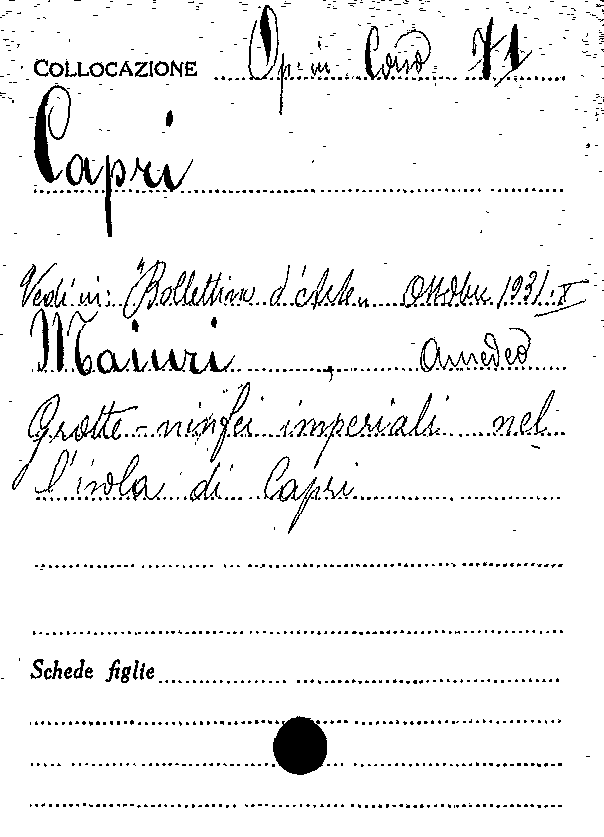 COLLOCAZIONE Op. in Cons 71
Capri
Vedi in: "Bollettino d'Arte„ Ottobre 1931-X
Maiuri, Amedeo
Grotte-ninfei imperiali nel
l'isola di Capri
Schede figlie